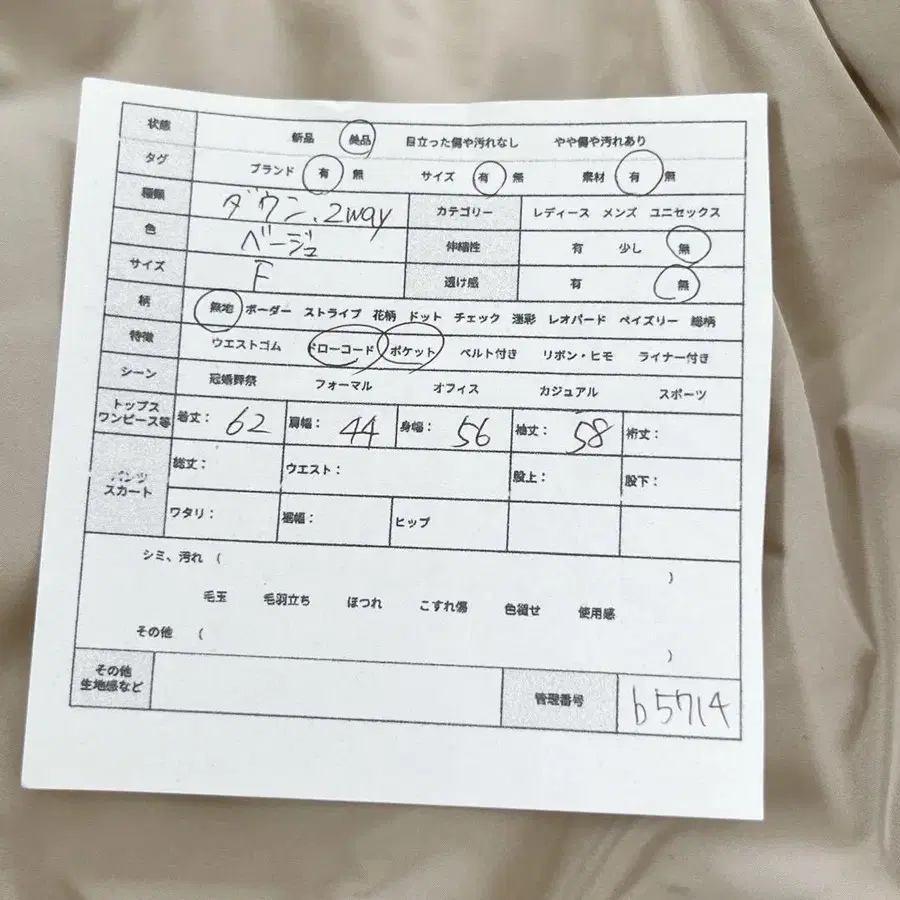 状態 新品 美品 目立った傷や汚れなし やや傷や汚れあり
タグ ブランド 有 無 サイズ 有 無 素材 有 無
種類 ダウン、2way カテゴリー レディース メンズ ユニセックス
色 ベージュ 伸縮性 有 少し 無
サイズ F 透け感 有 無
柄 無地 ボーダー ストライプ 花柄 ドット チェック 迷彩 レオパード ペイズリー 総柄
特徴 ウエストゴム ドローコード ポケット ベルト付き リボン・ヒモ ライナー付き
シーン 冠婚葬祭 フォーマル オフィス カジュアル スポーツ
トップス
ワンピース等 着丈: 62 肩幅: 44 身幅: 56 袖丈: 58 裄丈:
パンツ
スカート 総丈: ウエスト: 股上: 股下:
ワタリ: 裾幅: ヒップ
シミ、汚れ ( )
毛玉 毛羽立ち ほつれ こすれ傷 色褪せ 使用感
その他 ( )
その他
生地感など 管理番号 b5714